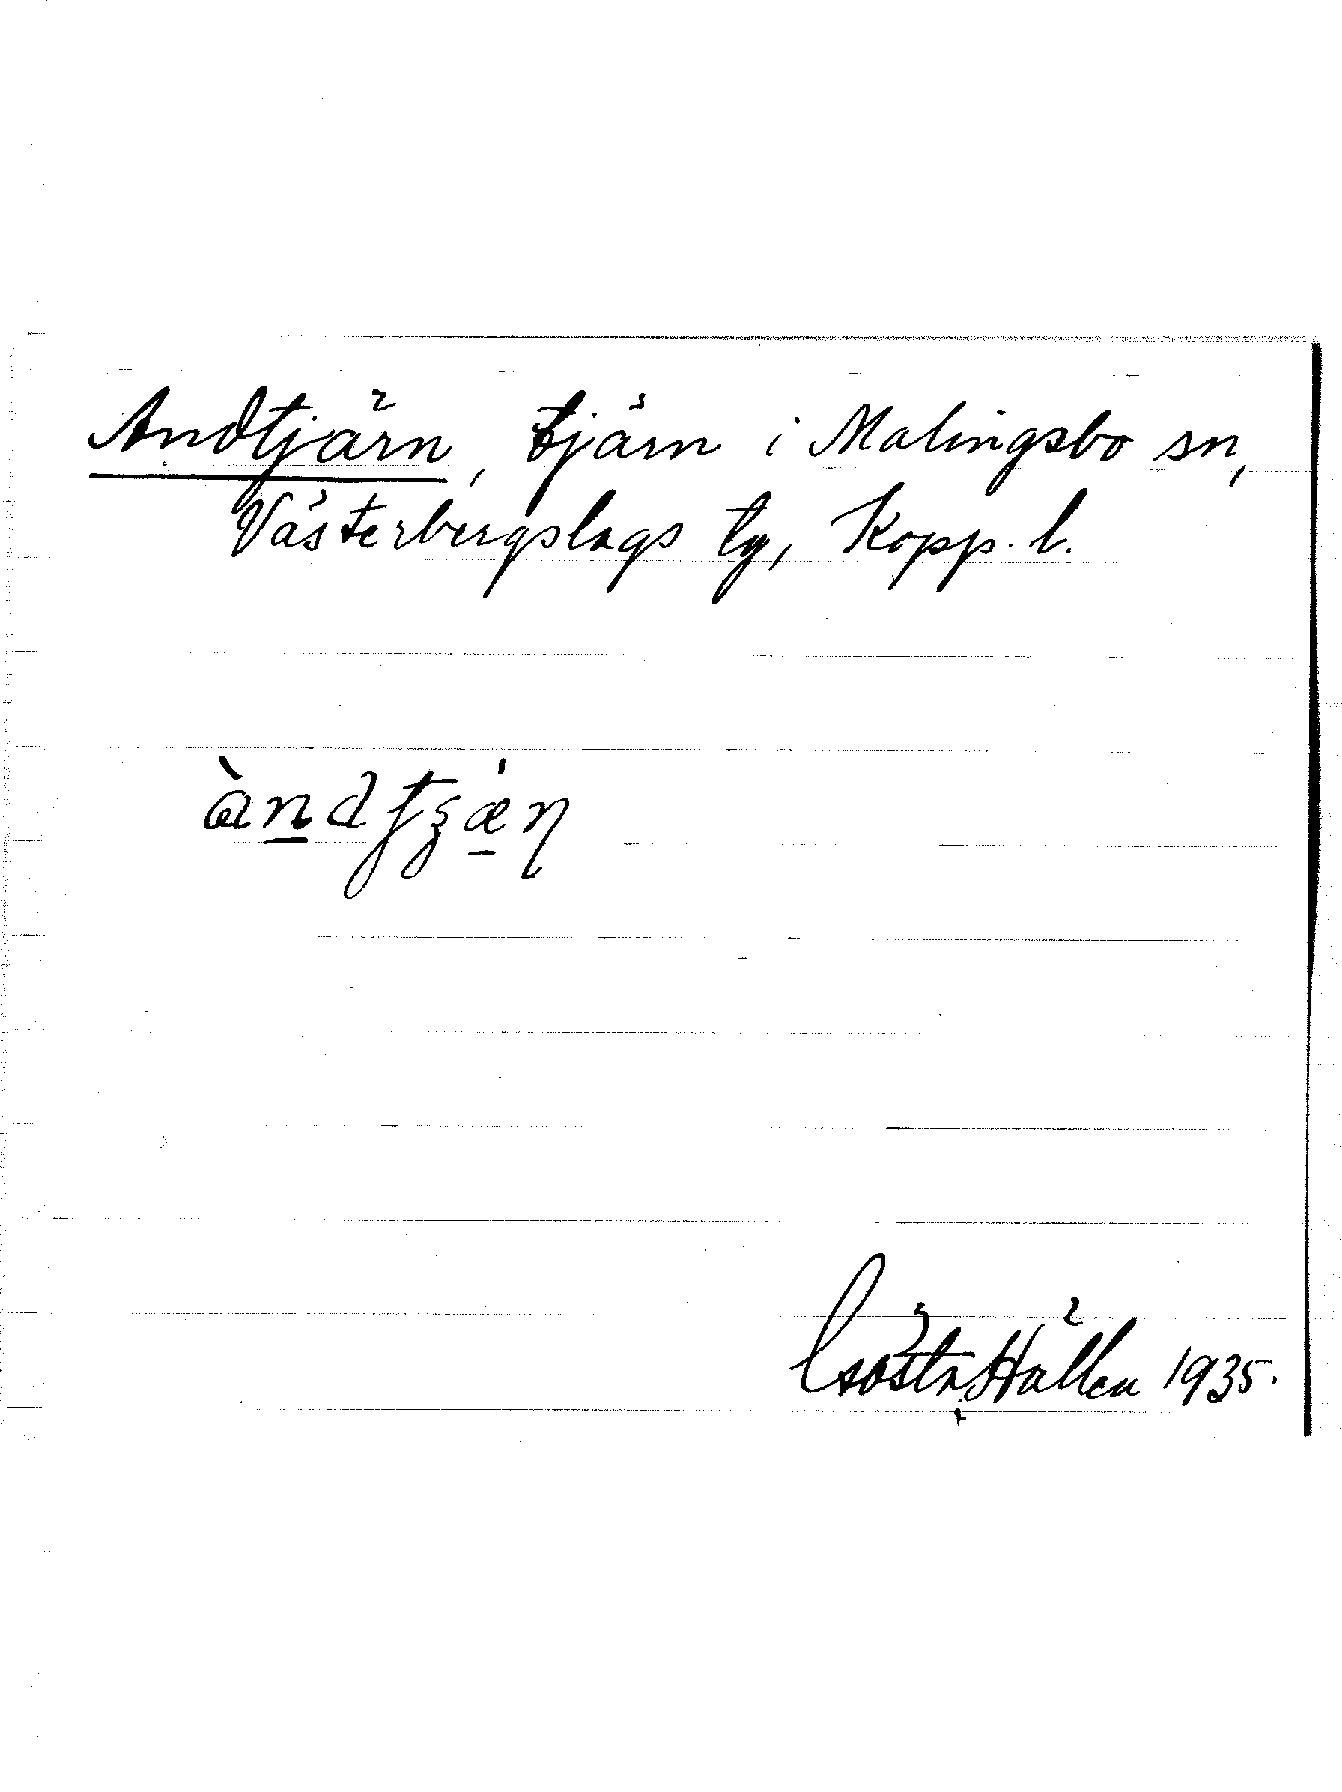 Andtjärn, tjärn i Malingsbo sn,
Västerbergslags tg, Kopp. l.
àndtʒǽɳ
Gösta Hällen 1935.